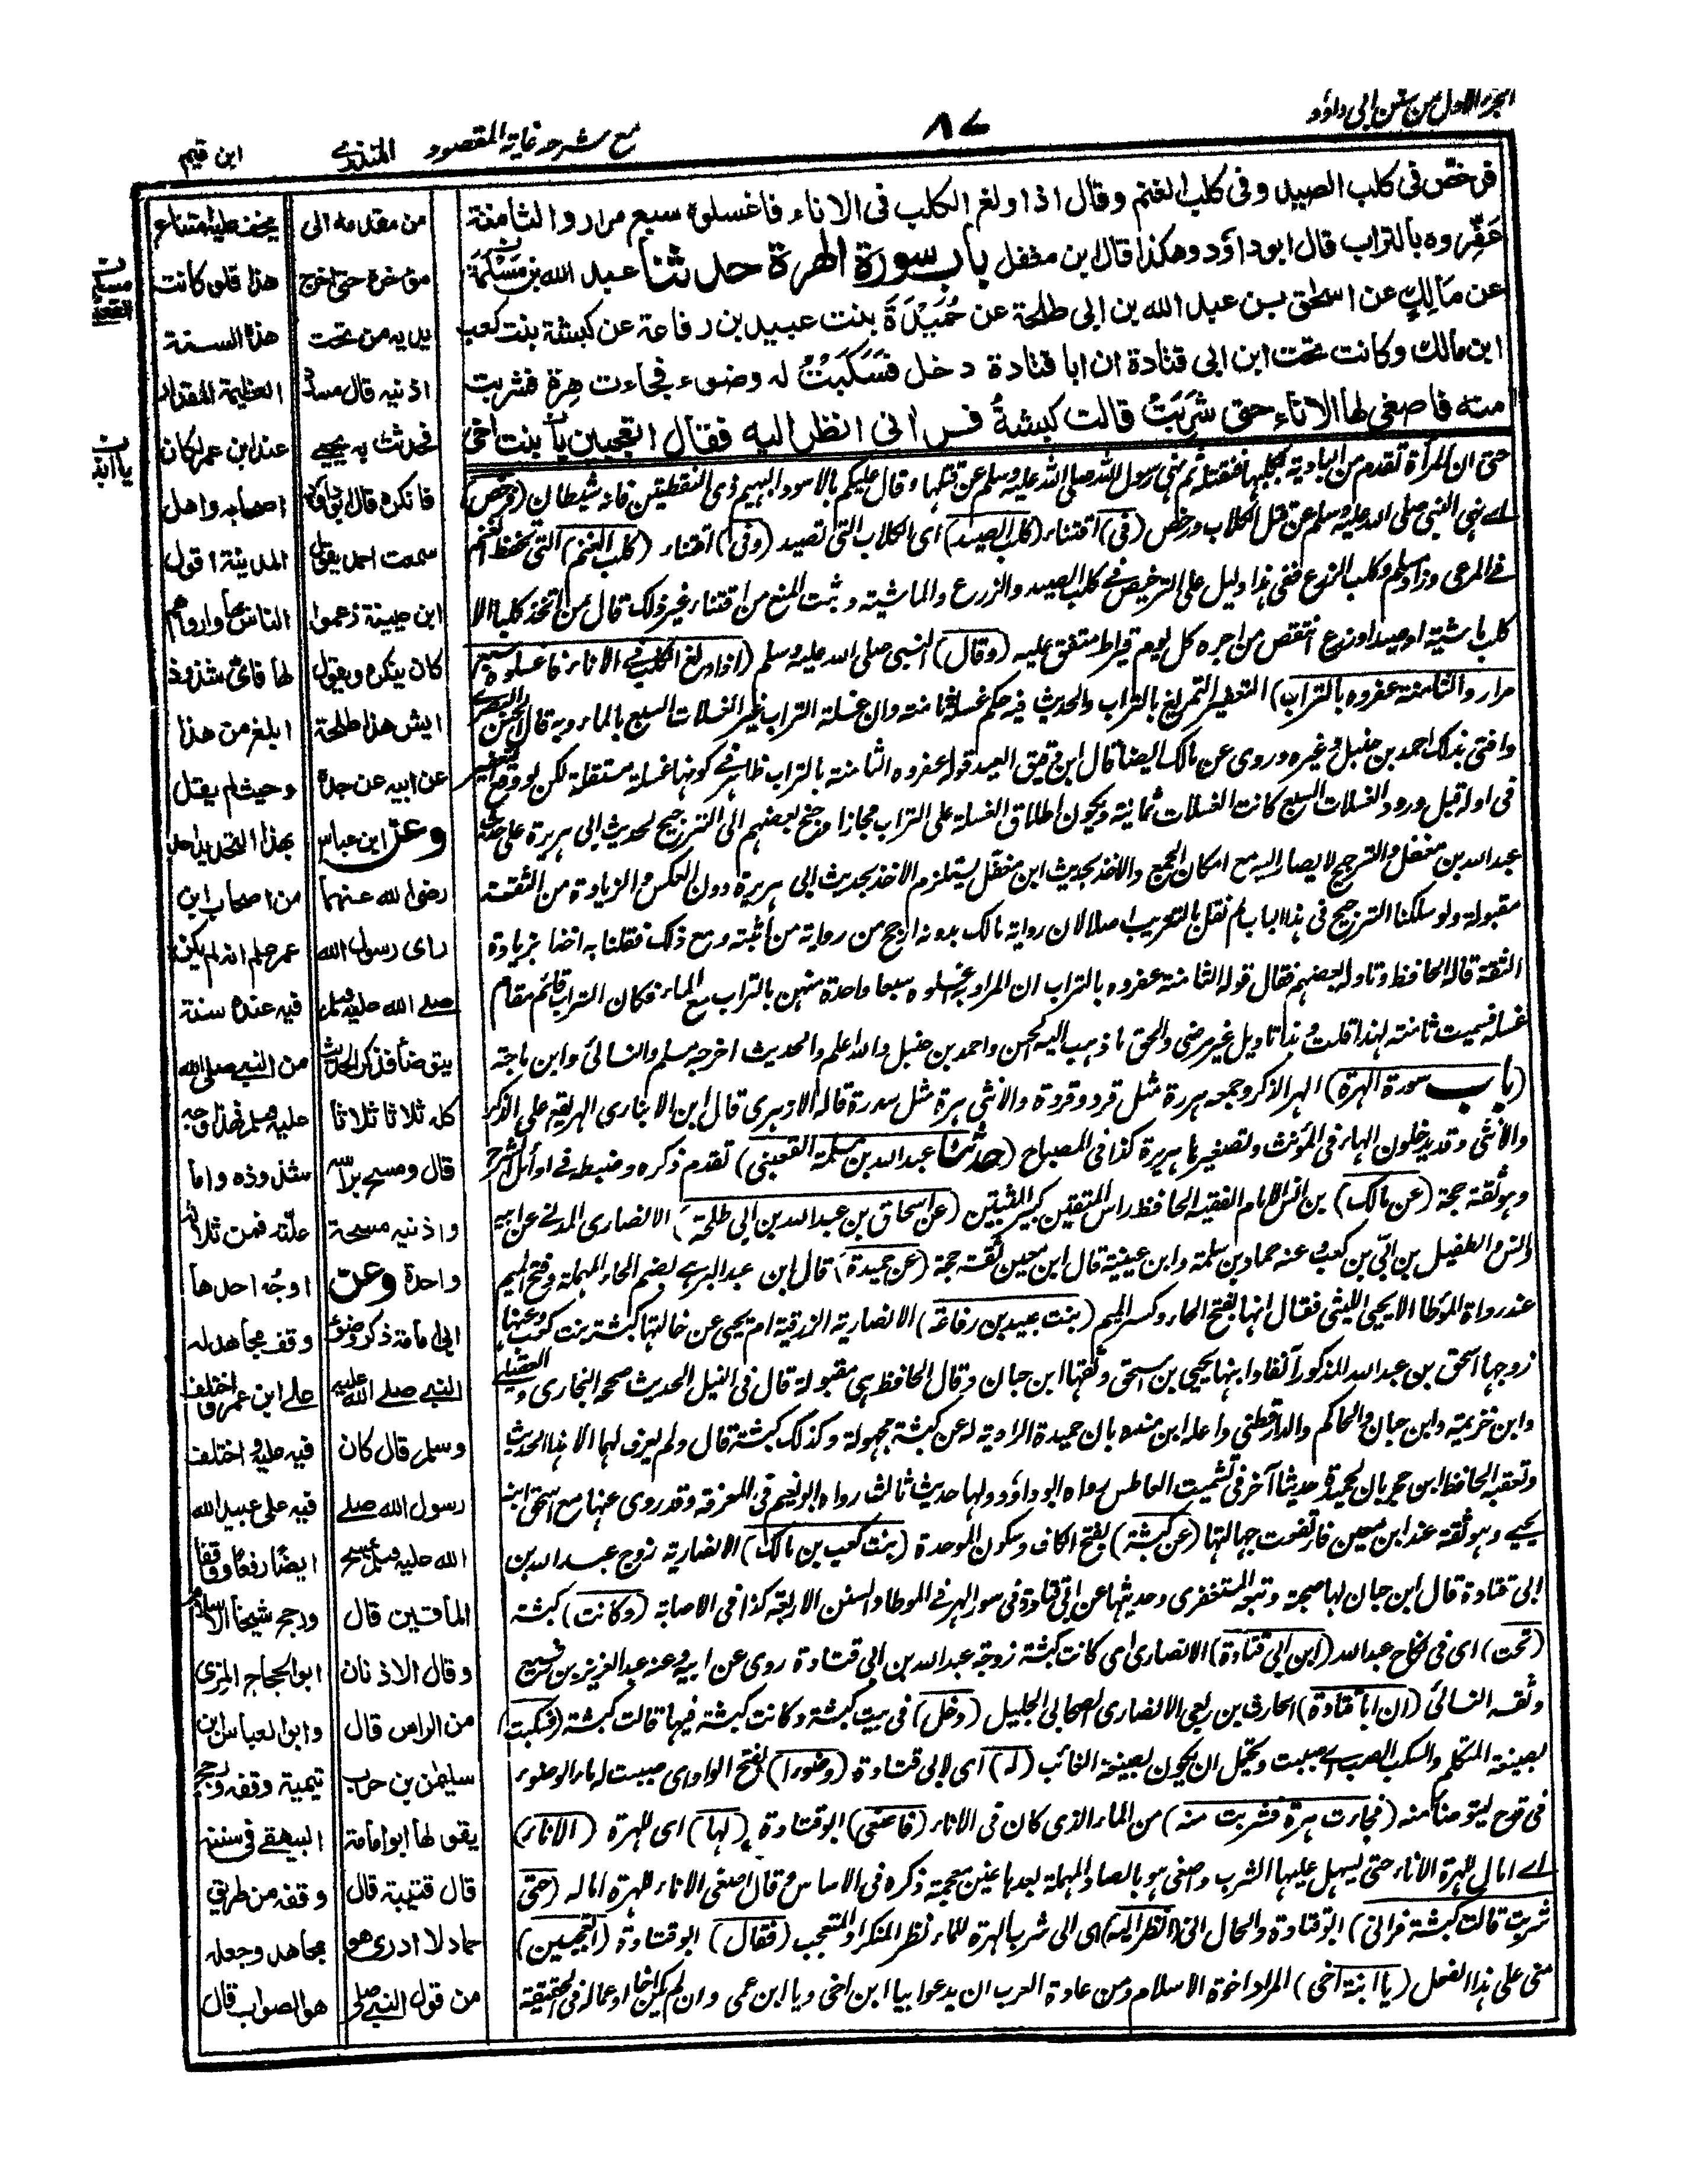 الجزء الاول من سنن ابی داؤد
٨٧
مع شرحه غاية المقصود
المنذری
ابن قيم
فرخّص فی كلب الصيد وفی كلب الغنم وقال اذا ولغ الكلب فی الاناء فاغسلوه سبع مرار والثامنة
عَفِّروه بالتراب قال ابوداؤد وهكذا قال ابن مغفل باب سورة الهرة حدثنا عبد الله بن مَسْلَمَة
عن مَالِكٍ عن اسحٰق بن عبد الله بن ابی طلحة عن حُمَيْدَةَ بنت عبيد بن رفاعة عن كبشة بنت كعب
ابن مالك وكانت تحت ابن ابی قتادة ان ابا قتادة دخل فَسَكَبَتْ له وضوء فجاءت هرة فشربت
منه فاصغی لها الاناء حتی شَرِبَتْ قالت كبشةُ فرانی انظر اليه فقال اتعجبين يا بنت اخی
حتی ان المرأة تقدم من البادية بكلبها فنقتله ثم نهی رسول الله صلی الله عليه وسلم عن قتلها وقال عليكم بالاسود البهيم ذی النقطتين فانه شيطان (ورخص)
اے نهی النبی صلی الله عليه وسلم عن قتل الكلاب ورخص (فی) اقتناء (كلب الصيد) ای الكلاب التی تصيد (وفی) اقتناء (كلب الغنم) التی تحفظ الغنم
فے المرعی وزاد مسلم وكلب الزرع ففی هذا دليل علی الترخيص فے كلب الصيد والزرع والماشية وثبت المنع من اقتناء غير ذلك قال من اتخذ كلبا الا
كلب ماشية او صيد او زرع انتقص من اجره كل يوم قيراط متفق عليه (وقال) النبی صلی الله عليه وسلم (اذا ولغ الكلب فے الاناء فاغسلوه سبع
مرار والثامنة عفروه بالتراب) التعفير التمريغ بالتراب والحديث فيه حكم غسلة ثامنة وان غسلة التراب غير الغسلات السبع بالماء وبه قال الحسن البصری
وافتی بذلك احمد بن حنبل وغيره وروی عن مالك ايضا قال ابن دقيق العيد قوله عفروه الثامنة بالتراب ظاهر فے كونها غسلة مستقلة لكن لو وقع التعفير
فی اوله قبل ورود الغسلات السبع كانت الغسلات ثمانية ويكون اطلاق الغسلة علی التراب مجازا وجنح بعضهم الی الترجيح لحديث ابی هريرة علی حديث
عبد الله بن مغفل والترجيح لا يصار اليه مع امكان الجمع والاخذ بحديث ابن مغفل يستلزم الاخذ بحديث ابی هريرة دون العكس والزيادة من الثقة
مقبولة ولو سلكنا الترجيح فی هذا الباب لم نقل بالتتريب اصلا لان رواية مالك بدونه ارجح من رواية من اثبته ومع ذلك فقلنا به اخذا بزيادة
الثقة قاله الحافظ وتاوله بعضهم فقال قوله الثامنة عفروه بالتراب ان المراد اغسلوه سبعا واحدة منهن بالتراب مع الماء فكان التراب قائم مقام
غسلة فسميت ثامنة لهذا قلت وهذا تاويل غير مرضی والحق ما ذهب اليه الحسن واحمد بن حنبل والله اعلم والحديث اخرجه مسلم والنسائی وابن ماجة
(باب سورة الهرة) الهر الذكر وجمعه هررة مثل قرد وقردة والانثی هرة مثل سدرة قاله الازهری قال ابن الانباری الهر يقع علی الذكر
والانثی وقد يدخلون الهاء فی المؤنث وتصغيرها هريرة كذا فی المصباح (حدثنا عبد الله بن مسلمة القعنبی) تقدم ذكره وضبطه فے اوائل الشرح
وهو ثقة حجة (عن مالك) بن انس الامام الفقيه الحافظ راس المتقين كبير المثبتين (عن اسحاق بن عبد الله بن ابی طلحة) الانصاری المدنے عن ابيه
وانس والطفيل بن ابیّ بن كعب وعنه حماد بن سلمة وابن عيينة قال ابن معين ثقة حجة (عن حميدة) قال ابن عبد البر هے بضم الحاء المهملة وفتح الميم
عند رواة المؤطا الا يحيی الليثی فقال انها بفتح الحاء وكسر الميم (بنت عبيد بن رفاعة) الانصارية الزرقية ام يحيی عن خالتها كبشة بنت كعب وعنها
زوجها اسحق بن عبد الله المذكور آنفا وابنها يحيی بن اسحق وثقها ابن حبان وقال الحافظ هی مقبولة قال فی النيل الحديث صححه البخاری والعقيلے
وابن خزيمة وابن حبان والحاكم والدارقطنی واعله ابن منده بان حميدة الراوية له عن كبشة مجهولة وكذلك كبشة قال ولم يعرف لهما الا هذا الحديث
وتعقبه الحافظ ابن حجر بان لحميدة حديثا آخر فی تشميت العاطس رواه ابوداؤد ولها حديث ثالث رواه ابونعيم فی المعرفة وقد روی عنها مع اسحق ابنه
يحيے وهو ثقة عند ابن معين فارتفعت جهالتها (عن كبشة) بفتح الكاف وسكون الموحدة (بنت كعب بن مالك) الانصارية زوج عبد الله بن
ابی قتادة قال ابن حبان لها صحبة وتبعه المستغفری وحديثها عن ابی قتادة فی سور الهر فے الموطا والسنن الاربعة كذا فی الاصابة (وكانت) كبشة
(تحت) ای فی نكاح عبد الله (ابن ابی قتادة) الانصاری ای كانت كبشة زوجة عبد الله بن ابی قتادة روی عن ابيه وعنه عبد العزيز بن رفيع
وثقه النسائی (ان ابا قتادة) الحارث بن ربعی الانصاری الصحابی الجليل (دخل) فی بيت كبشة وكانت كبشة فيها قالت كبشة (فسكبت)
بصيغة المتكلم والسكب الصب اے صببت ويحتمل ان يكون بصيغة الغائب (له) ای لابی قتادة (وضوءا) بفتح الواو ای صببت له ماء الوضوء
فی قدح ليتوضأ منه (فجاءت هرة فشربت منه) من الماء الذی كان فی الاناء (فاصغی) ابوقتادة (لها) ای للهرة (الاناء)
اے امال للهرة الاناء حتی يسهل عليها الشرب واصغی هو بالصاد المهملة بعدها غين معجمة ذكره فی الاساس وقال اصغی الاناء للهرة اماله (حتی
شربت قالت كبشة فرانی) ابوقتادة والحال انی (انظر اليه) ای الی شرب الهرة للماء نظر المنكر او المتعجب (فقال) ابوقتادة (اتعجبين)
منی علی هذا الفعل (يا ابنة اخی) المراد اخوة الاسلام ومن عادة العرب ان يدعوا بيا ابن اخی ويا ابن عمی وان لم يكن اخا او عما له فی الحقيقة
من مقدمه الی
مؤخره حتی اخرج
يديه من تحت
اذنيه قال مسدد
فحدثت به يحيے
فانكره قال ابوداؤد
سمعت احمد يقول
ابن عيينة زعموا
كان ينكره ويقول
ايش هذا طلحة
عن ابيه عن جده
وعن ابن عباس
رضی الله عنهما
رای رسول الله
صلے الله عليه وسلم
يتوضأ فذكر الحديث
كله ثلاثا ثلاثا
قال ومسح براسه
واذنيه مسحة
واحدة وعن
ابی امامة ذكر وضوء
النبے صلے الله عليه
وسلم قال كان
رسول الله صلے
الله عليه وسلم يمسح
المأقين قال
وقال الاذنان
من الراس قال
سليمٰن بن حرب
يقولها ابوامامة
قال قتيبة قال
حماد لا ادری هو
من قول النبے صلے
يخفف عليه متناع
هذا فلو كانت
هذه السنة
العظيمة المقدار
عند ابن عمر لكان
اصحابه واهل
المدينة اقول
الناس بها وارواهم
لها فای شذوذ
ابلغ من هذا
وحيث لم يقل
بهذا التحديد احد
من اصحاب ابن
عمر علم انه لم يكن
فيه عنده سنة
من النبے صلی الله
عليه وسلم فهذا وجه
شذوذه واما
علّته فمن ثلاثة
اوجُه احدها
وقف مجاهد له
علے ابن عمر واختلف
فيه عليه واختلف
فيه علی عبيد الله
ايضًا رفعًا ووقفًا
ورجح شيخا الاسلام
ابو الحجاج المزی
وابو العباس ابن
تيمية وقفه ورجح
البيهقے فی سننه
وقفه من طريق
مجاهد وجعله
هو الصواب قال